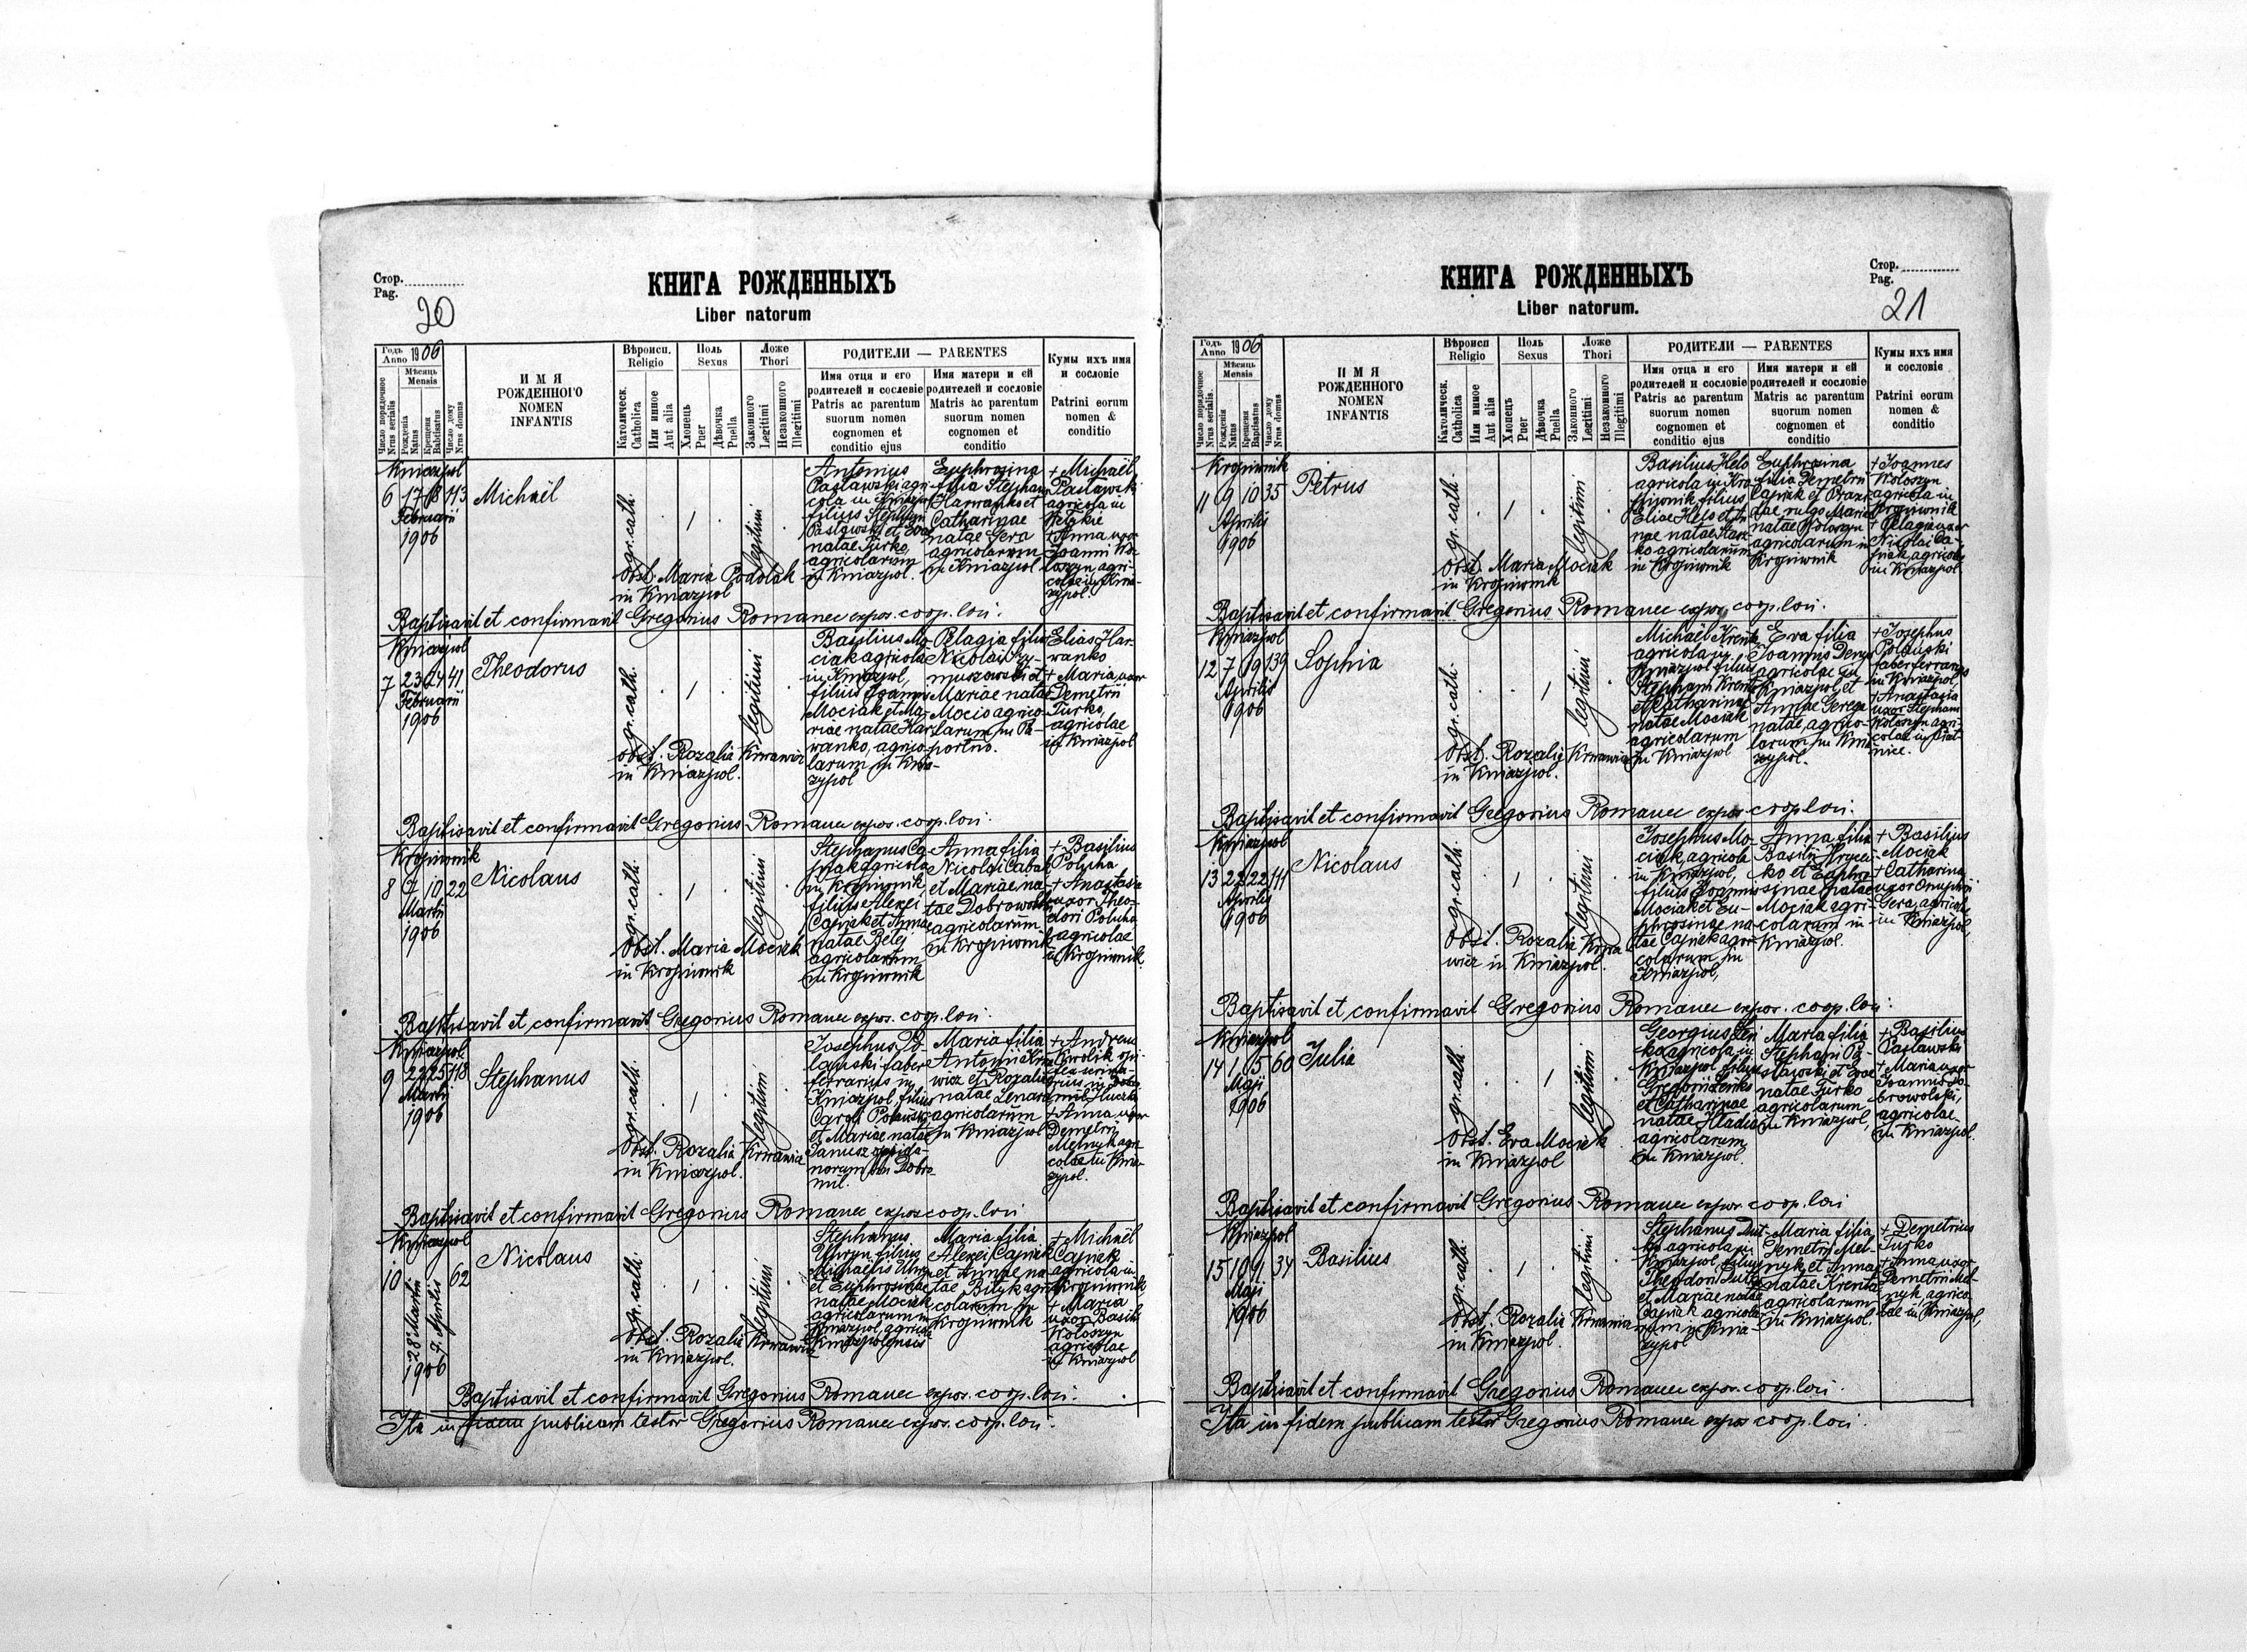 Стор.
Pag.
20
КНИГА РОЖДЕННЫХЪ
Liber natorum
Годъ
Anno 1906
Мѣсяць
Mensis
Число порядочное
Nrus serialis
Рожденія
Natus
Крещенія
Babtisatus
Число дому
Nrus domus
ИМЯ
РОЖДЕННОГО
NOMEN
INFANTIS
Вѣроисп.
Religio
Католическ.
Catholica
Или инное
Aut alia
Полъ
Sexus
Хлопецъ
Puer
Дѣвочка
Puella
Ложе
Thori
Законного
Legitimi
Незаконного
Illegitimi
РОДИТЕЛИ — PARENTES
Имя отца и его
родителей и сословіе
Patris ac parentum
suorum nomen
cognomen et
conditio ejus
Имя матери и ей
родителей и сословіе
Matris ac parentum
suorum nomen
cognomen et
conditio
Кумы ихъ имя
и сословіе
Patrini eorum
nomen &
conditio
Kniazpol
6 17 18 113
Februarii
1906
Michaël
gr. cath.
legitimi
Obst. Maria Podolak
in Kniazpol
Antonius
Pasławski agri-
cola in Kniazpol
filius Stephani
Pasławski et Evae
natae Turko,
agricolarum
in Kniazpol.
Euphrosina
filia Stephani
Harwanko et
Catharinae
natae Gera
agricolarum
in Kniazpol
+ Michaël
Pasławski
agricola in
Wełykie
+ Anna uxor
Joanni Wo-
łoszyn agri-
colae in Knia-
zypol.
Baptisavit et confirmavit Gregorius Romanec expos. coop. loci.
Kniazpol
7 23 24 41
Februarii
1906
Theodorus
gr. cath.
legitimi
Obst. Rozalia Krwawicz
in Kniazpol.
Basilius Mo-
ciak agricola
in Kniazpol,
filius Joannis
Mociak et Ma-
riae natae Har-
wanko, agrico-
larum in Knia-
zypol
Pelagia filia
Nicolai
Mariae natae
Mocio agrico-
larum in Pa-
portno.
Elias Har-
wanko
+ Maria uxor
Demetrii
Turko,
agricolae
in Kniazpol
Baptisavit et confirmavit Gregorius Romanec expos. coop. loci.
Kropiwnik
8 7 10 22
Martii
1906
Nicolaus
gr. cath.
legitimi
Obst. Maria Mociak
in Kropiwnik
Stephanus Ca-
piak agricola
in Kropiwnik
filius Alexei
Capiak et Annae
natae Bełej
agricolarum
in Kropiwnik
Anna filia
Nicolai Cabak
et Mariae na-
tae Dobrowolski
agricolarum
in Kropiwnik
+ Basilius
Połucha
+ Anastasia
uxor Theo-
dori Połucha
agricolae
in Kropiwnik.
Baptisavit et confirmavit Gregorius Romanec expos. coop. loci.
Kniazpol.
9 22 25 118
Martii
1906
Stephanus
gr. cath.
legitimi
Obst. Rozalia Krwawicz
in Kniazpol.
Josephus Po-
faber
ferrarius in
Kniazpol, filius
Caroli
et Mariae natae
Janusz oppida-
norum in Dobro-
mil.
Maria filia
Antonii Krwa-
wicz et Rozaliae
natae Lenar
agricolarum
in Kniazpol
+ Andreas
Karolik
+ Anna uxor
Demetrii
Melnyk agri-
colae in Knia-
zypol.
Baptisavit et confirmavit Gregorius Romanec expos coop. loci
Kniazpol
10 28 Martii 7. Aprilis 62
1906
Nicolaus
gr. cath.
legitimi
Obst. Rozalia Krwawicz
in Kniazpol.
Stephanus
Uhryn filius
Michaëlis Uhryn
et Euphrosinae
natae Mociak
agricolarum in
Kniazpol, agricola
Kniazpolensis
Maria filia
Alexei Capiak
et Annae na-
tae Bilyk agri-
colarum in
Kropiwnik
+ Michaël
Capiak
agricola in
Kropiwnik
+ Maria
uxor Basilii
Wołoszyn
agricolae
in Kniazpol
Baptisavit et confirmavit Gregorius Romanec expos. coop. loci.
Ita in fidem publicam testor Gregorius Romanec expos. coop. loci.
Стор.
Pag.
21
КНИГА РОЖДЕННЫХЪ
Liber natorum.
Годъ
Anno 1906
Мѣсяць
Mensis
Число порядочное
Nrus serialis.
Рожденія
Natus
Крещенія
Baptisatus
Число дому
Nrus domus
ИМЯ
РОЖДЕННОГО
NOMEN
INFANTIS
Вѣроисп
Religio
Католическ.
Catholica
Или инное
Aut alia
Полъ
Sexus
Хлопецъ
Puer
Дѣвочка
Puella
Ложе
Thori
Законного
Legitimi
Незаконного
Illegitimi
РОДИТЕЛИ — PARENTES
Имя отца и его
родителей и сословіе
Patris ac parentum
suorum nomen
cognomen et
conditio ejus
Имя матери и ей
родителей и сословіе
Matris ac parentum
suorum nomen
cognomen et
conditio
Кумы ихъ имя
и сословіе
Patrini eorum
nomen &
conditio
Kropiwnik
11 9 10 35
Aprilis
1906
Petrus
gr. cath.
legitimi
Obst. Maria Mociak
in Kropiwnik
Basilius Helo
agricola in Kro-
piwnik filius
Eliae Helo et An-
nae natae
agricolarum
in Kropiwnik
Euphrosina
filia Demetrii
Capiak et
vulgo Mariae
natae Wołoszyn
agricolarum in
Kropiwnik
+ Joannes
Wołoszyn
agricola in
Kropiwnik
+ Pelagia uxor
Nicolai Ca-
piak agricolae
in Kniazpol
Baptisavit et confirmavit Gregorius Romanec expos. coop. loci.
Kniazpol
12 7 19 139
Aprilis
1906
Sophia
gr. cath.
legitimi
Obst. Rozalia Krwawicz
in Kniazpol.
Michaël Krenta
agricola in
Kniazpol filius
Stephani Krenta
et Catharinae
natae Mociak
agricolarum
in Kniazpol
Eva filia
Joannis Denys
agricolae in
Kniazpol et
Annae Gerega
natae, agrico-
larum in Knia-
zypol.
+ Josephus
faber ferrarius
in Kniazpol,
+ Anastasia
uxor Stephani
Wołoszyn agri-
colae in Piat-
nice.
Baptisavit et confirmavit Gregorius Romanec expos coop. loci.
Kniazpol
13 22 22 111
Aprilis
1906
Nicolaus
gr. cath.
legitimi
Obst. Rozalia Krwa
wicz in Kniazpol.
Josephus Mo-
ciak, agricola
in Kniazpol,
filius Joannis
Mociak et Eu-
phrosinae na-
tae Capiak agri-
colarum in
Kniazpol,
Anna filia
Basilii Hryce-
ko et Euphro-
sinae natae
Mociak agri-
colarum in
Kniazpol.
+ Basilius
Mociak
+ Catharina
uxor Onuphrii
Gera, agricolae
in Kniazpol,
Baptisavit et confirmavit Gregorius Romanec expos. coop. loci.
Kniazpol
14 1 5 60
Maji
1906
Julia
gr. cath.
legitimi
Obst. Eva Mociak
in Kniazpol
Georgius Sen-
ko agricola in
Kniazpol, filius
Gregorii Senko
et Catharinae
natae Hladio
agricolarum
in Kniazpol.
Maria filia
Stephani Pa-
sławski et Evae
natae Turko
agricolarum
in Kniazpol,
+ Basilius
Pasławski
+ Maria uxor
Joannis Do-
browolski,
agricolae
in Kniazpol.
Baptisavit et confirmavit Gregorius Romanec expos. coop. loci
Kniazpol
15 10 11 34
Maji
1906
Basilius
gr. cath.
legitimi
Obst. Rozalia Krwawicz
in Kniazpol.
Stephanus Dut-
ko agricola in
Kniazpol, filius
Theodori Dutko
et Mariae natae
Capiak agricola-
rum in Knia-
zypol
Maria filia
Demetrii Mel-
nyk et Annae
natae Krenta
agricolarum
in Kniazpol.
+ Demetrius
Turko
+ Anna uxor
Demetrii Mel-
nyk, agrico-
lae in Kniazpol,
Baptisavit et confirmavit Gregorius Romanec expos. coop. loci.
Ita in fidem publicam testor Gregorius Romanec expos coop. loci.